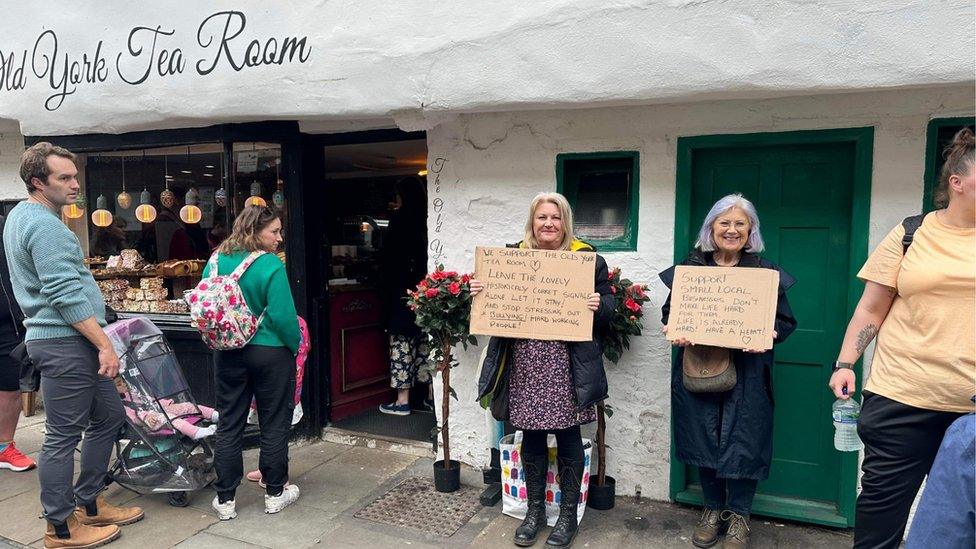 Old York Tea Room
The Old Y
WE SUPPORT THE OLD YORK
TEA ROOM ♡
LEAVE THE LOVELY
HISTORICALLY CORRECT SIGNAGE
ALONE LET IT STAY!
AND STOP STRESSING OUT
& BULLYING! HARD WORKING
PEOPLE!
SUPPORT
SMALL LOCAL
BUSINESSES DON'T
MAKE LIFE HARD
FOR THEM.
LIFE IS ALREADY
HARD! HAVE A HEART!
♡